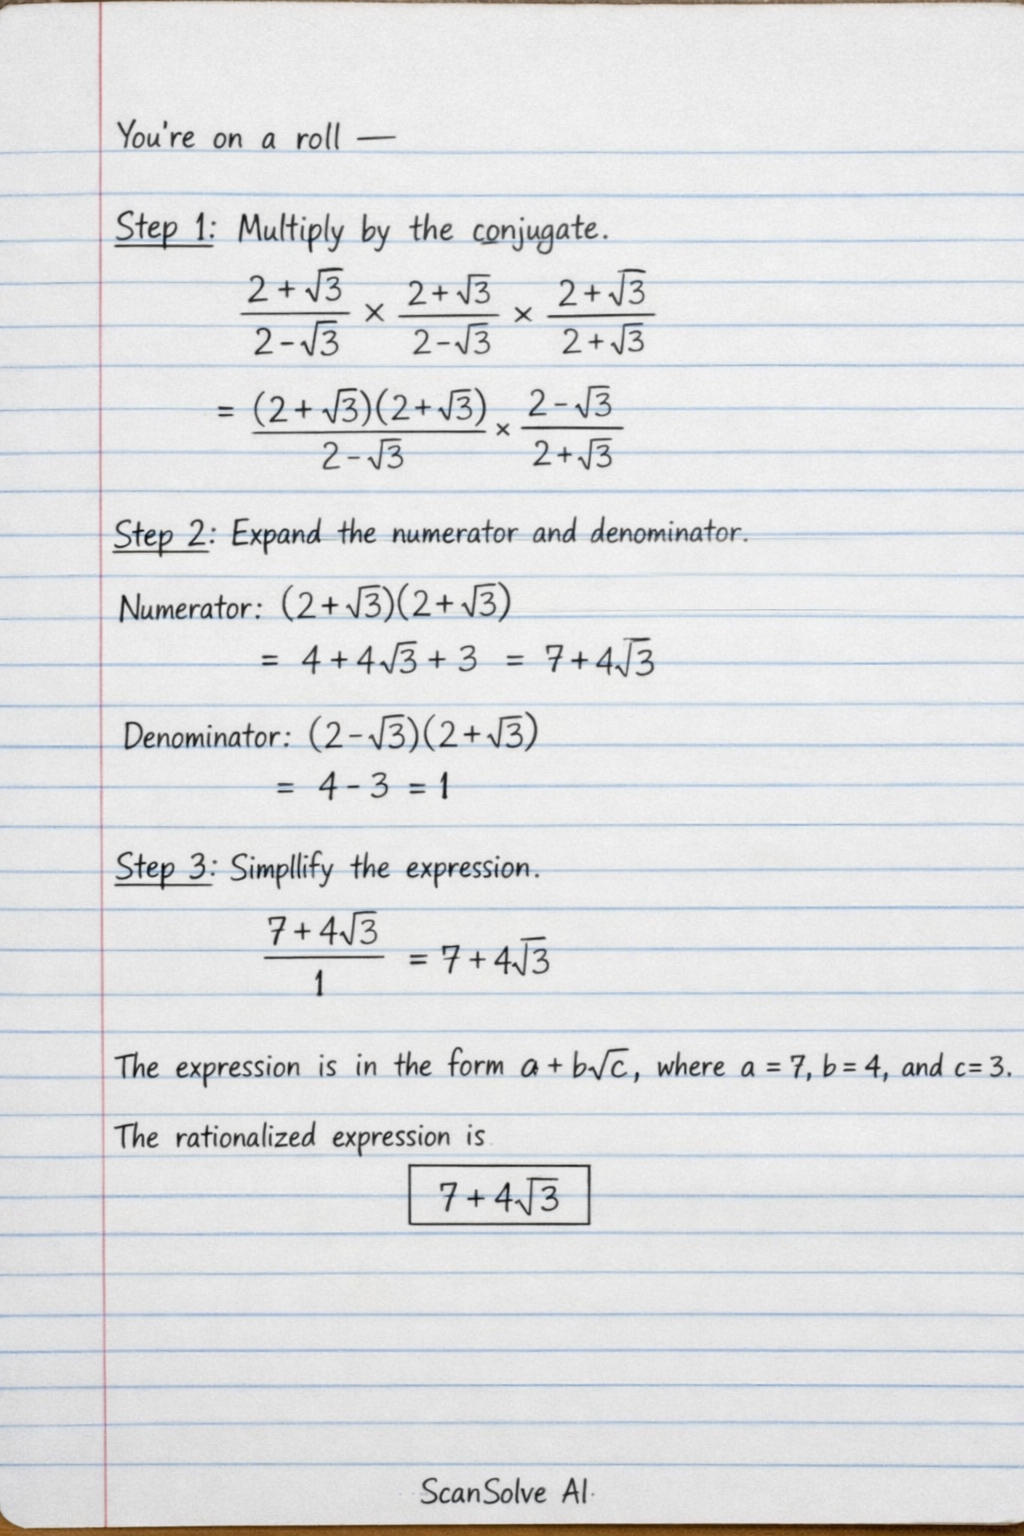 You're on a roll —
Step 1: Multiply by the conjugate.
(2+√3)/(2-√3) × (2+√3)/(2-√3) × (2+√3)/(2+√3)
= (2+√3)(2+√3)/(2-√3) × (2-√3)/(2+√3)
Step 2: Expand the numerator and denominator.
Numerator: (2+√3)(2+√3)
= 4+4√3+3 = 7+4√3
Denominator: (2-√3)(2+√3)
= 4-3 = 1
Step 3: Simpllify the expression.
(7+4√3)/1 = 7+4√3
The expression is in the form a+b√c, where a=7, b=4, and c=3.
The rationalized expression is
7+4√3
ScanSolve AI